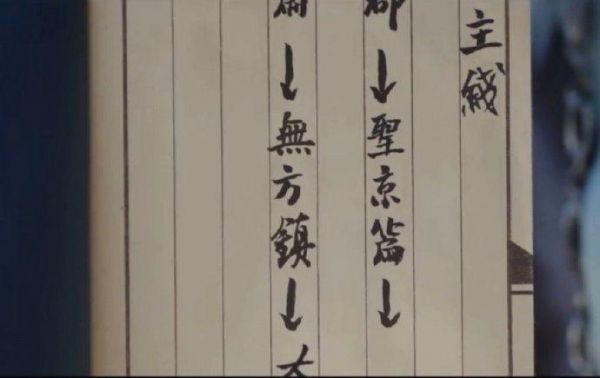 主綫
↓聖京篇↓
↓無方鎮↓